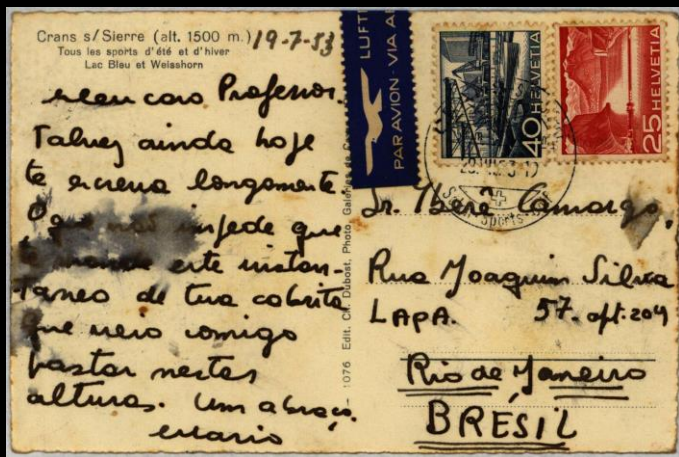 Crans s/Sierre (alt. 1500 m.)
Tous les sports d'été et d'hiver
Lac Bleu et Weisshorn
19-7-53
Meu caro Professor.
Talvez ainda hoje
te escreva longamente
O que não impede que
te mande este instan-
taneo de tua cabrita
que veio comigo
pastar nestas
alturas. Um abraço.
Mario
1076 Edit. Ch. Dubost, Photo, Galeries de
PAR AVION · VIA
40 HELVETIA
25 HELVETIA
Sports
Sr. Iberê Camargo.
Rua Joaquim Silva
LAPA. 57. apt. 204
Rio de Janeiro
BRESIL